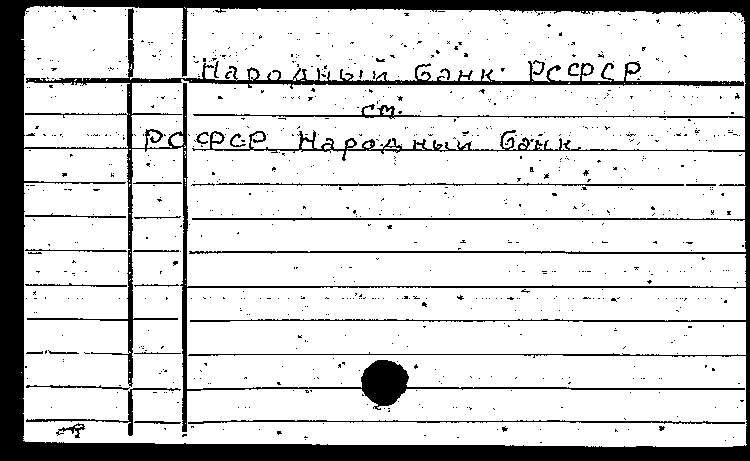 Народный банк РСФСР
см.
РСФСР Народный банк